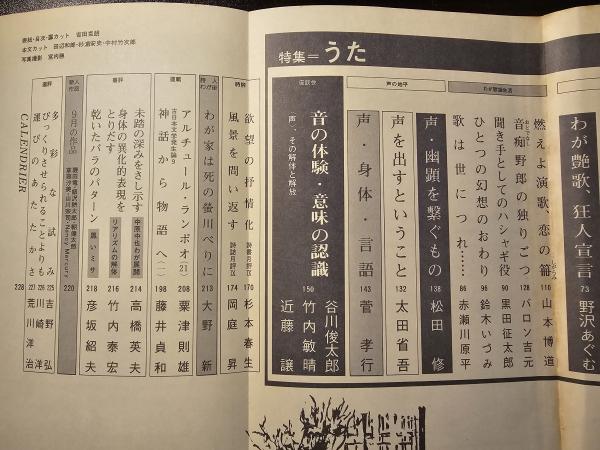 特集＝うた
わが艶歌、狂人宣言 73 野沢あぐむ
燃えよ演歌、恋の籥 110 山本博道
音痴野郎の独りごつ 128 バロン吉元
わが歌謡生活
聞き手としてのハシャギ役 90 黒田征太郎
ひとつの幻想のおわり 96 鈴木いづみ
歌は世につれ…… 86 赤瀬川原平
声・幽顕を繋ぐもの 138 松田修
声の地平
声を出すということ 132 太田省吾
声・身体・言語 143 菅孝行
座談会
音の体験・意味の認識
声・その解体と解放
150
谷川俊太郎
竹内敏晴
近藤譲
表紙・目次・扉カット
本文カット 田辺和郎・杉浦
写真撮影 宮内勝
時評
欲望の抒情化 詩書月評Ⅸ 170 杉本春生
風景を問い返す 詩誌月評Ⅸ 174 岡庭昇
詩人
わが街
わが家は死の螢川べりに 213 大野新
連載
アルチュール・ランボオ（21） 208 粟津則雄
古日本文学発生論9
神話から物語へ（二） 198 藤井貞和
書評
未踏の深みをさし示す 中原中也わが展開 214 高橋英夫
身体の異化的表現をとりだす リアリズムの解体 216 竹内泰宏
乾いたバラのパターン 黒いミサ 218 彦坂紹夫
新人作品
9月の作品
Nancy Mercury
220
選評
多彩な試み 225 吉野弘
びっくりさせられることよりも 226 川崎洋
運びのあたたかさ 227 荒川洋治
CALENDRIER 228